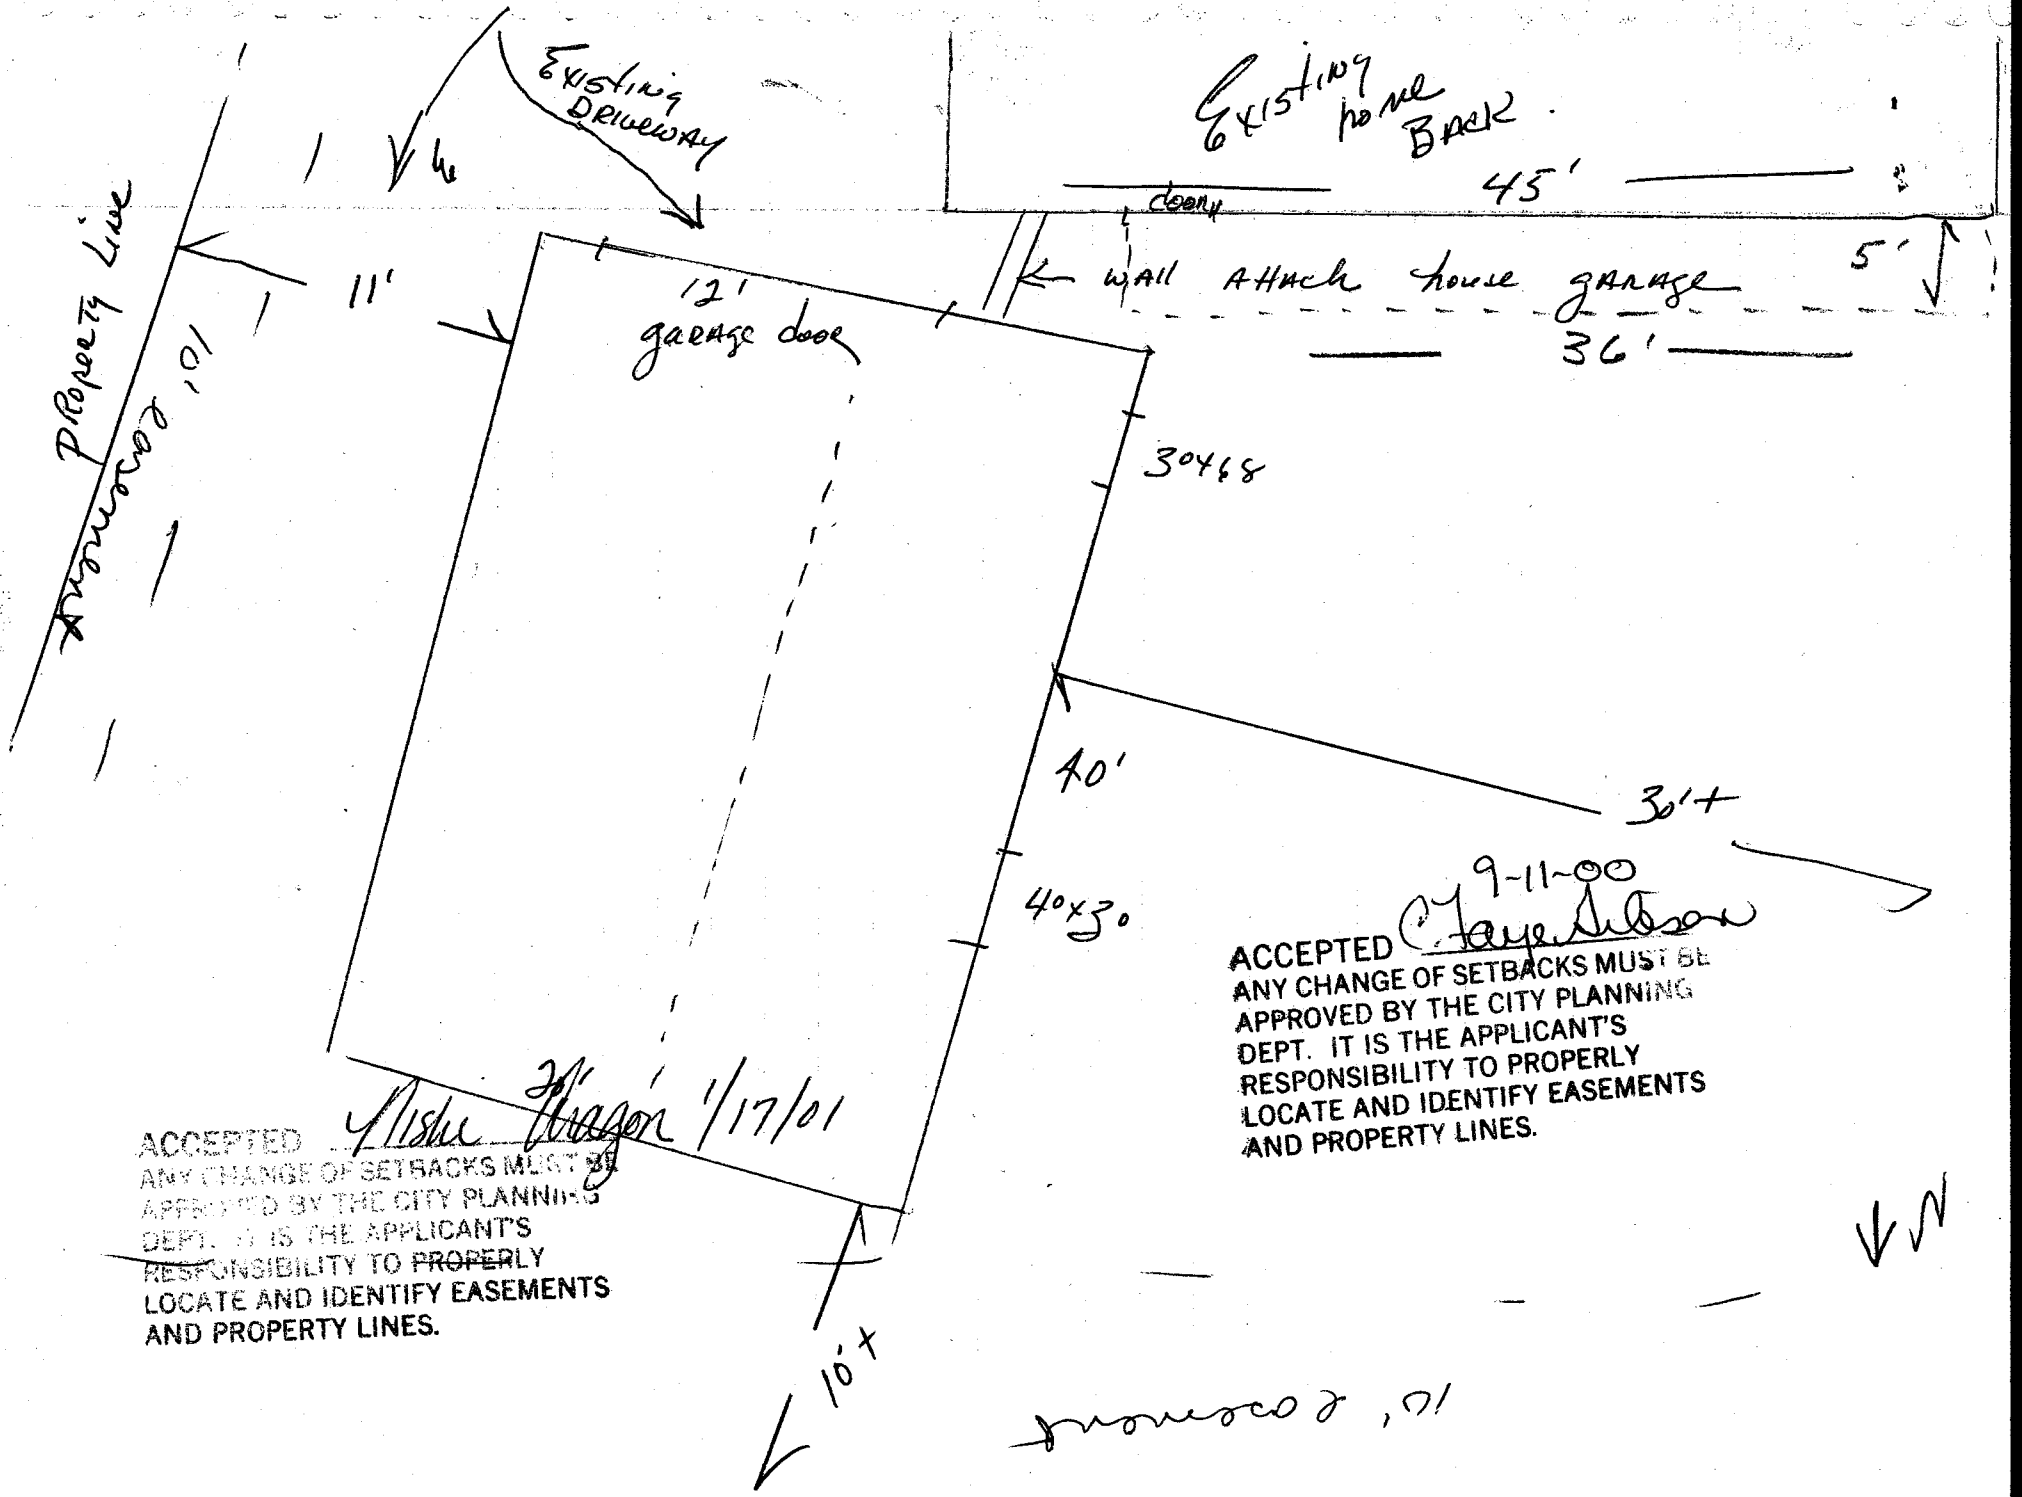 Existing
DRIVEWAY
Existing
home
BACK
45'
door
5'
wall AttAch house gARAge
36'
Property Line
10' easement
11'
12'
garage door
30x68
40'
30'+
40x30
9-11-00
ACCEPTED C. Faye Gibson
ANY CHANGE OF SETBACKS MUST BE
APPROVED BY THE CITY PLANNING
DEPT. IT IS THE APPLICANT'S
RESPONSIBILITY TO PROPERLY
LOCATE AND IDENTIFY EASEMENTS
AND PROPERTY LINES.
20'
ACCEPTED 1/17/01
ANY CHANGE OF SETBACKS MUST BE
APPROVED BY THE CITY PLANNING
DEPT. IT IS THE APPLICANT'S
RESPONSIBILITY TO PROPERLY
LOCATE AND IDENTIFY EASEMENTS
AND PROPERTY LINES.
N
10'+
10' easement